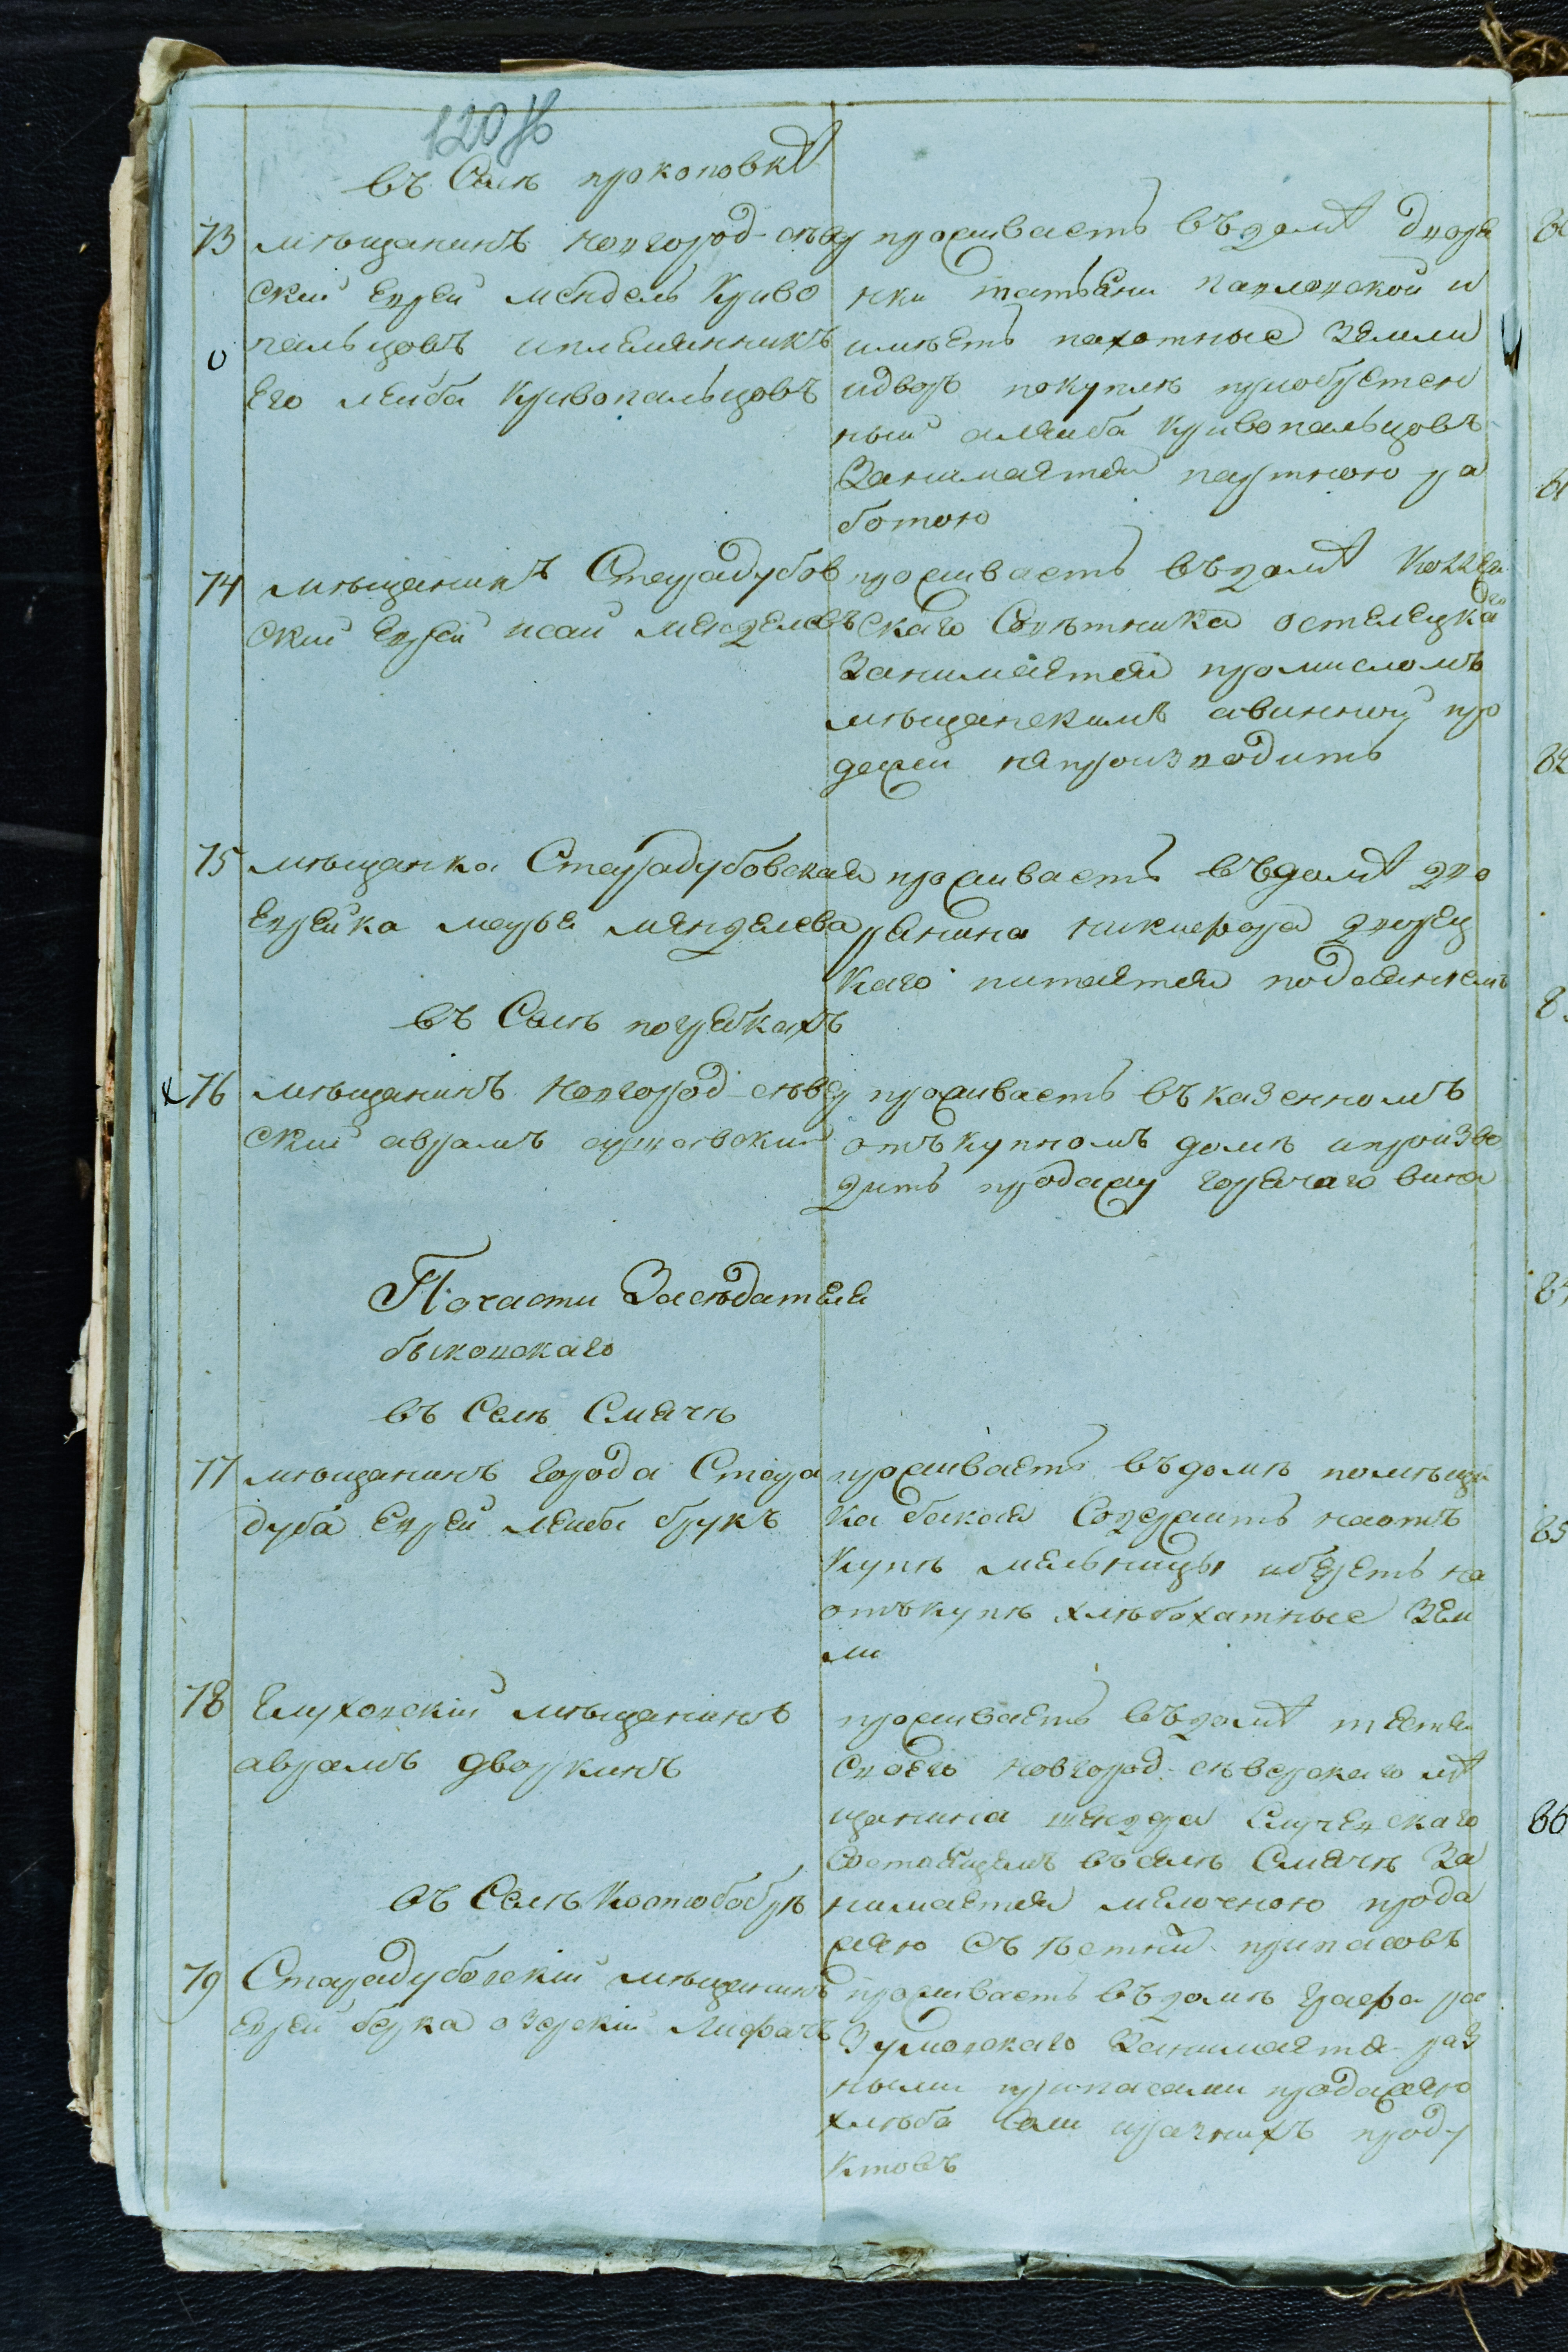 въ Селѣ прокоповкѣ
73
мѣщанинъ новгород-сѣвер
ский еврей мендель Криво
пальцовъ иплемянникъ
его лейба кривопальцовъ
проживаетъ въ домѣ дворя
нки татьяни павловской и
имѣетъ пахотные земли
идворъ покуплѣ приобретен
ный алейба кривопальцовъ
занимается партною ра
ботою
74
мѣщанинъ Старадубов
ский еврей исай менделевъ
проживаетъ въ домѣ коллеж
скаго Совѣтника остелецкаго
занимается промисломъ
мѣщанскимъ авинную про
дажи непроизводить
75
мѣщанка Старадубовская
еврейка марья менделева
проживаетъ въ домѣ дво
рянина никифора дворец
каго питается подаяниемъ
въ Селѣ погребкахъ
76
мѣщанинъ новгород-сѣвер
ский аврамъ
проживаетъ въ казенномъ
отъкупномъ домѣ ипроизво
дить продажу горячаго вина
По части Засѣдателя
быковскаго
въ Селѣ Смячѣ
77
мѣщанинъ города Стара
дуба еврей лейба брукъ
проживаетъ въ домѣ помѣщи
ка бакая Содержитъ наотъ
купѣ мельницы иберетъ на
отъкупѣ хлѣбопахатные Зем
ли
78
Глуховский мѣщанинъ
аврамъ дворкинъ
проживаетъ въ домѣ тестя
своего новгород-сѣверскаго мѣ
щанина
Состоящемъ въ селѣ Смячѣ за
нимается мелочною прода
жею съѣстнй припасовъ
въ Селѣ Костобобрѣ
79
Старадубовский мѣщанинъ
еврей берка озерский
проживаетъ въ домѣ графа ра
зумовскаго занимается раз
ными припасами продажею
хлѣба Соли ипрачнихъ проду
ктовъ